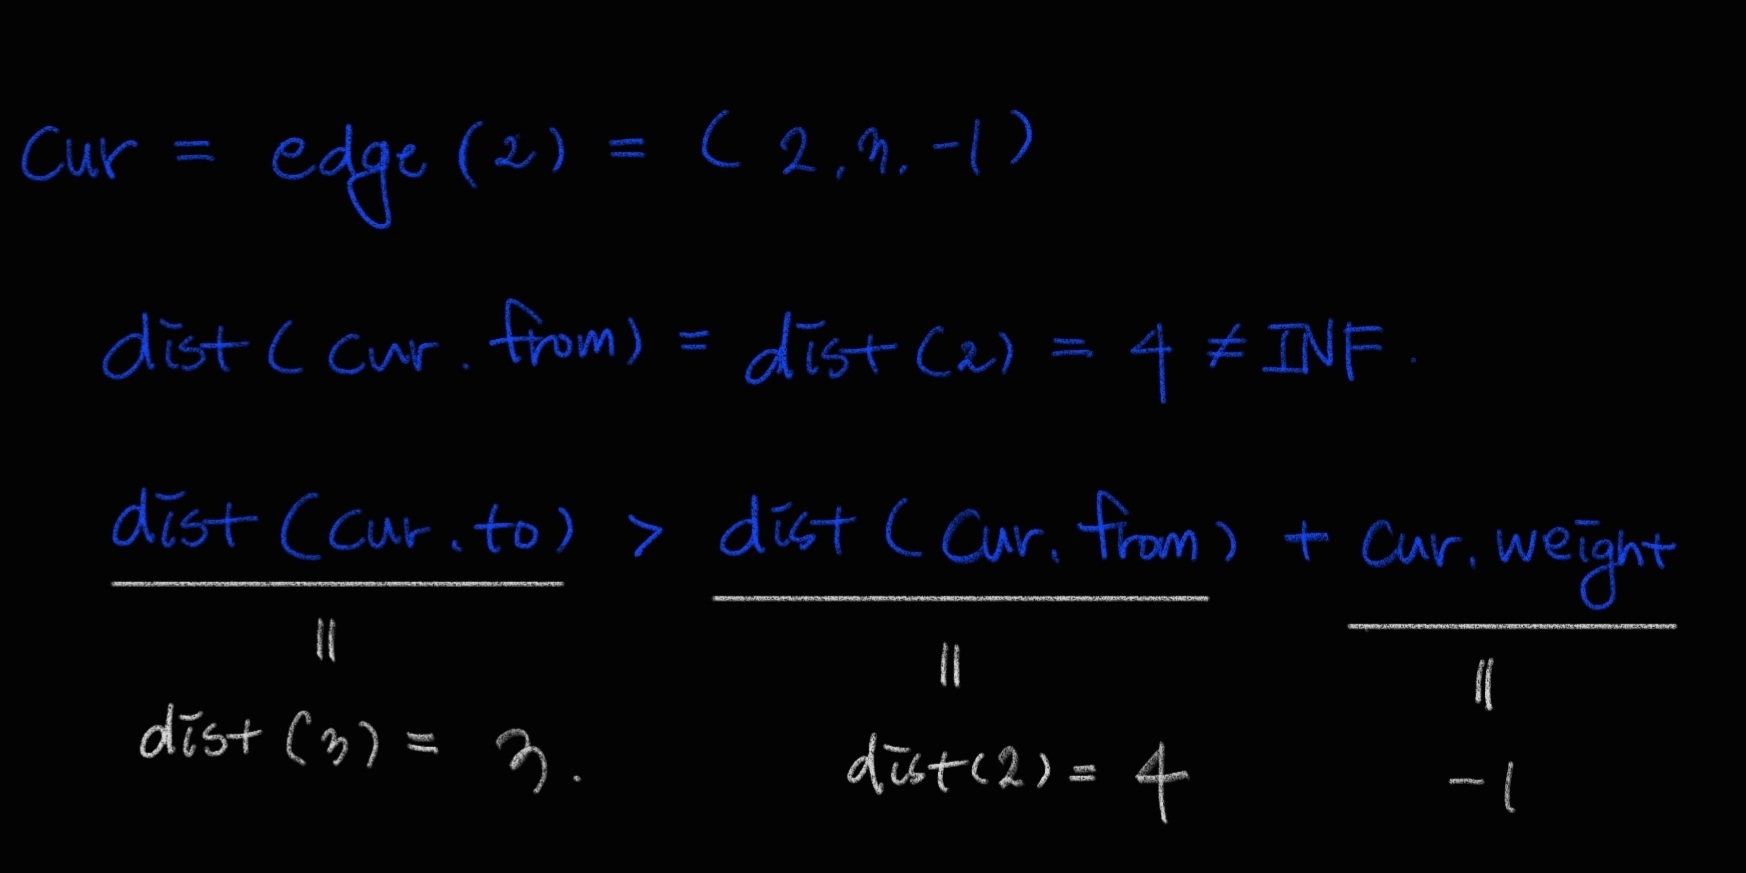 Cur = edge (2) = ( 2, 3, -1 )
dist ( cur . from ) = dist (2) = 4 ≠ INF .
dist ( cur . to ) > dist ( cur . from ) + cur . weight
|| || ||
dist (3) = 3 . dist (2) = 4 -1